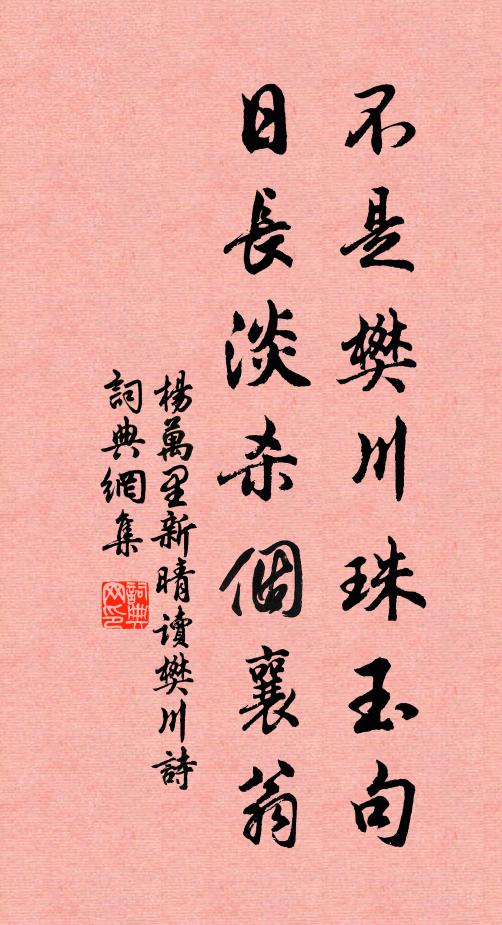 不是樊川珠玉句
日長淡杀個襄翁
楊萬里新晴讀樊川詩
詞典網集
詞典网印